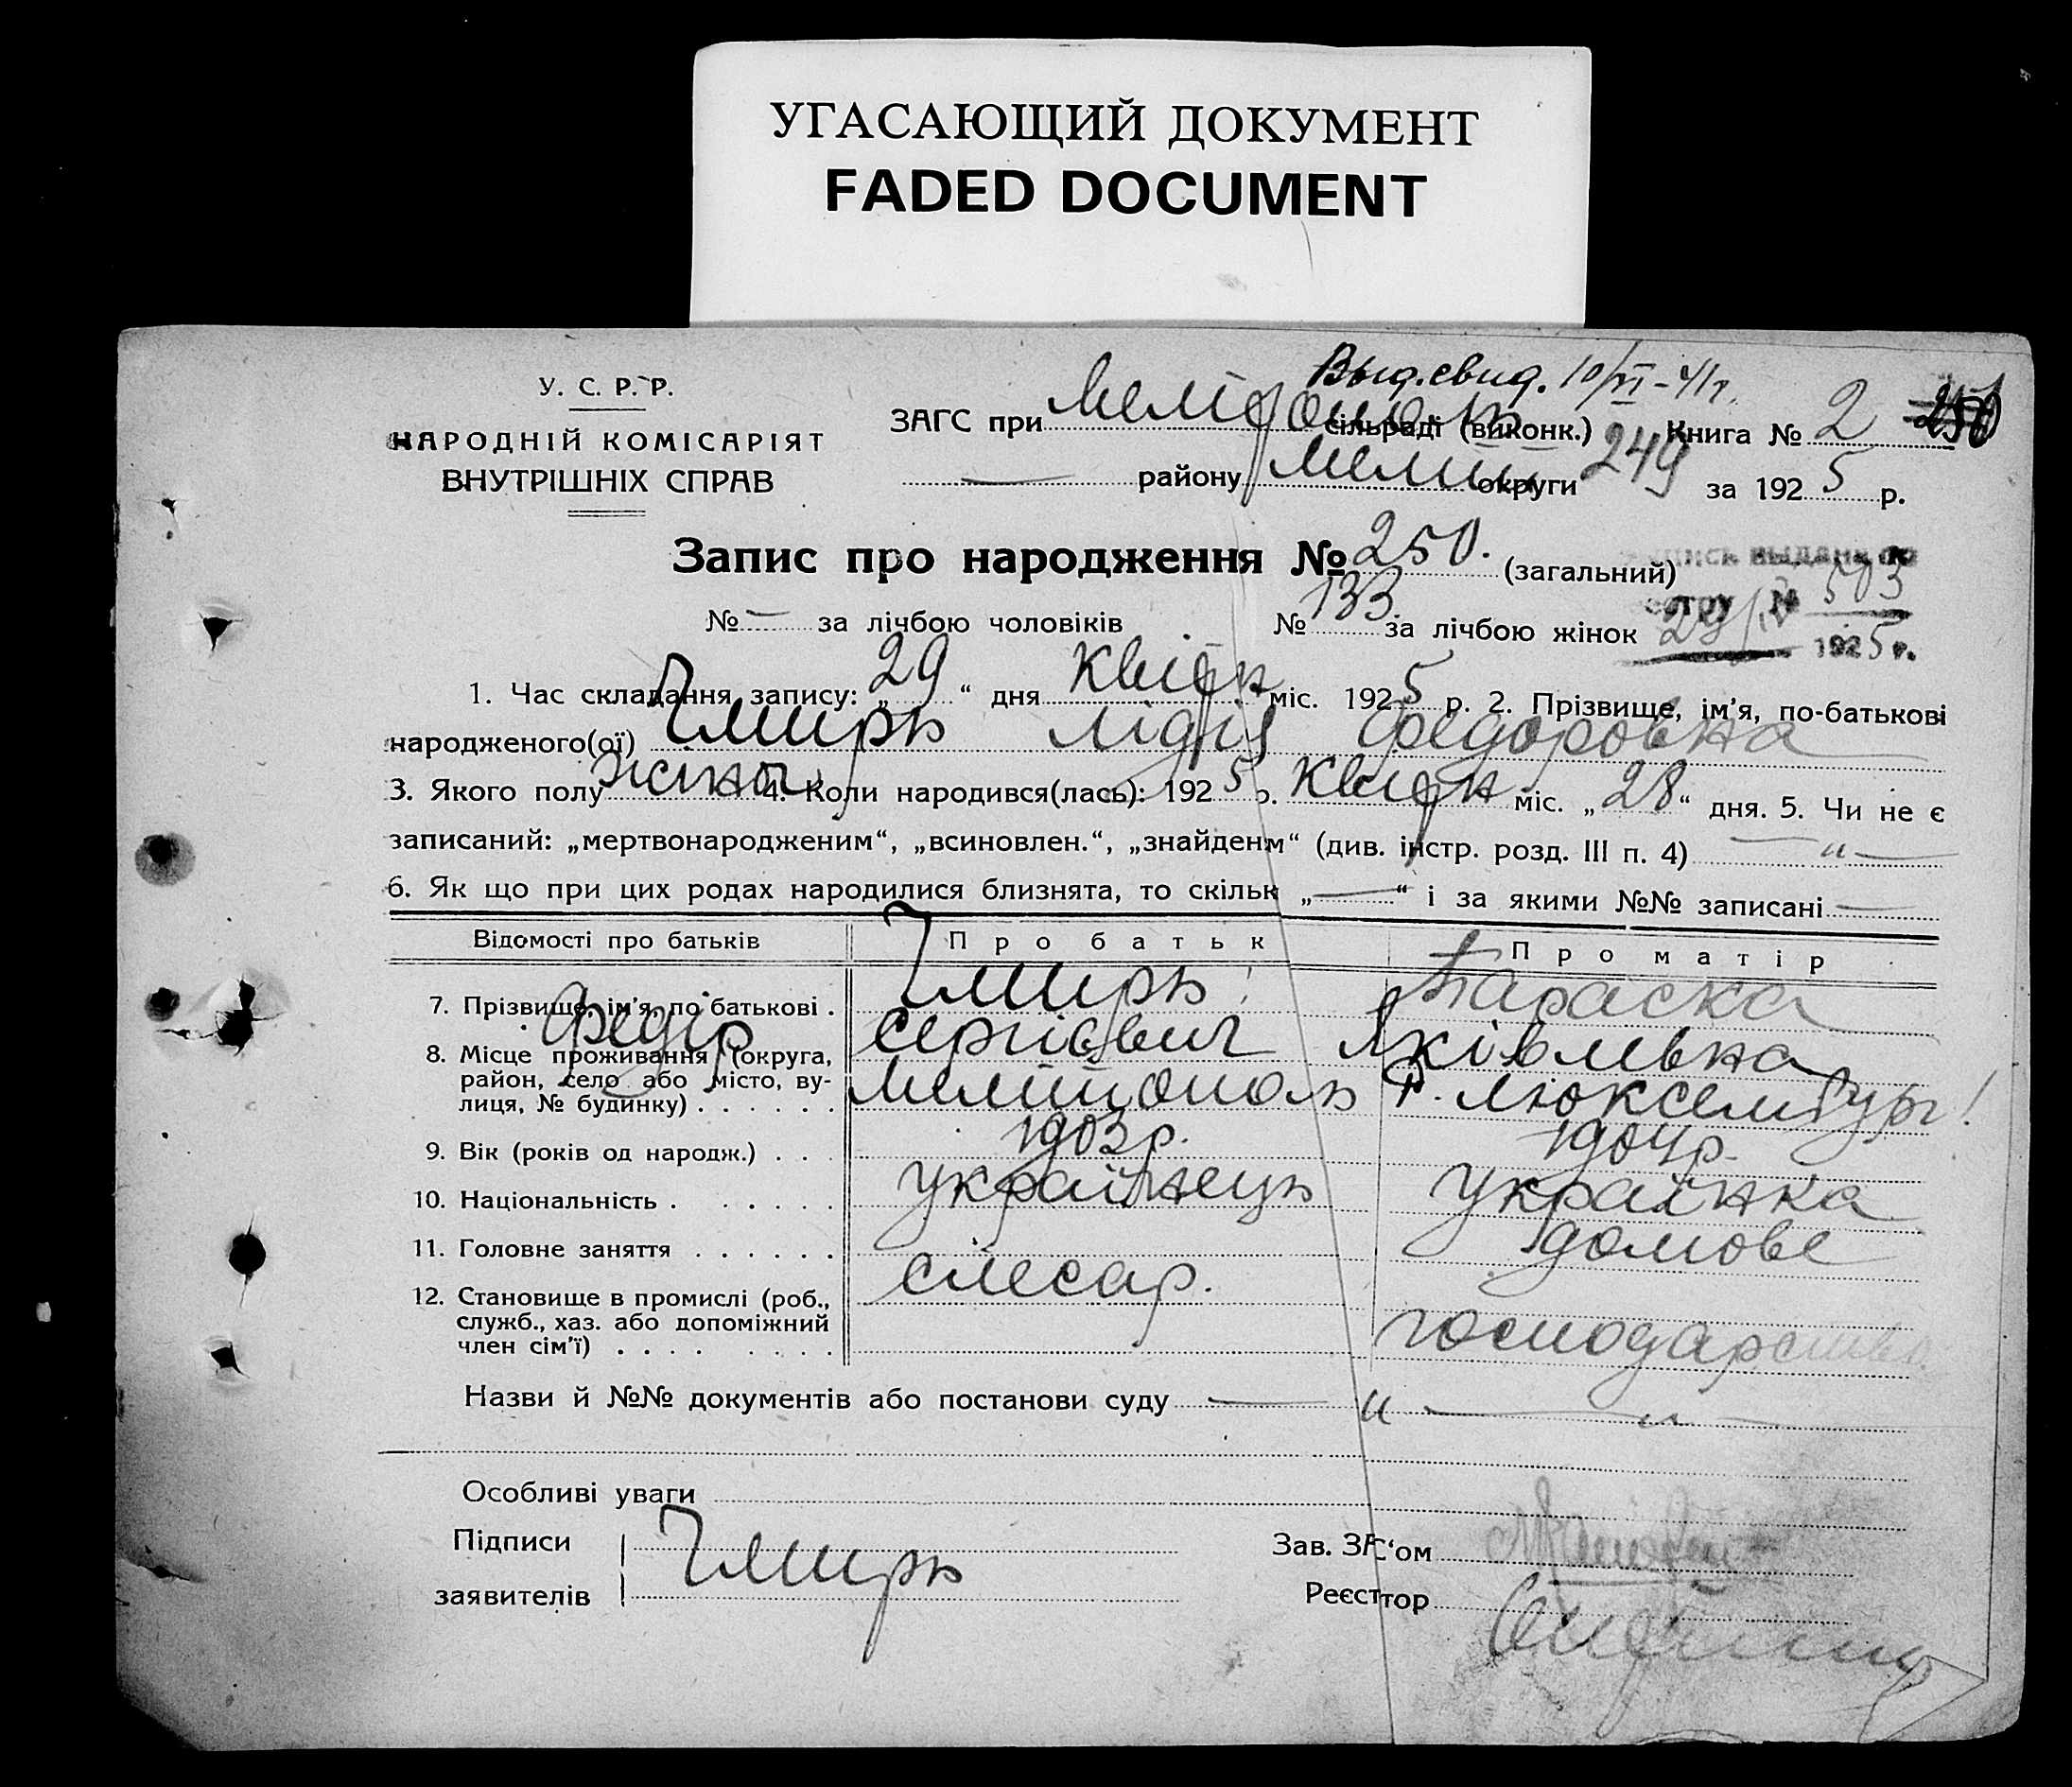 УГАСАЮЩИЙ ДОКУМЕНТ
FADED DOCUMENT
Выд. свид. 10/VI-41г.
У. С. Р. Р.
НАРОДНІЙ КОМІСАРІЯТ
ВНУТРІШНІХ СПРАВ
ЗАГС при Мелітополь сільраді (виконк.) Книга № 2 250
— району Мелит. округи 249 за 1925 р.
Запис про народження № 250. (загальний)
№ — за лічбою чоловіків № 133. за лічбою жінок
выдана по
№ 503
29/IV 1925 г.
1. Час складання запису: „29“ дня Квітн міс. 1925 р. 2. Прізвище, ім’я, по-батькові
народженого(ої) Чмирь Лідія Федоровна
3. Якого полу жіноч. 4. Коли народився(лась): 1925 р. Квітн міс. „28“ дня. 5. Чи не є
записаний: „мертвонародженим“, „всиновлен.“, „знайденм“ (див. інстр. розд. III п. 4) — „ —
6. Як що при цих родах народилися близнята, то скільк „—“ і за якими №№ записані —
Відомості про батьків Про батьк Про матір
7. Прізвище, ім’я, по батькові . Чмирь Параска
Федір Сергієвич Яківлевна
8. Місце проживання (округа,
район, село або місто, ву-
лиця, № будинку) . . . . . . Мелітополь Р. Люксембург!
9. Вік (років од народж.) . . . 1903 р. 1904 р.
10. Національність . . . . . . українець українка
11. Головне заняття . . . . . . слесар. домове
12. Становище в промислі (роб.,
служб., хаз. або допоміжний
член сім’ї) . . . . . . . . господарство
Назви й №№ документів або постанови суду — „ — „ —
Особливі уваги
Підписи
заявителів Чмирь
Зав. ЗАС‘ом
Реєсттор